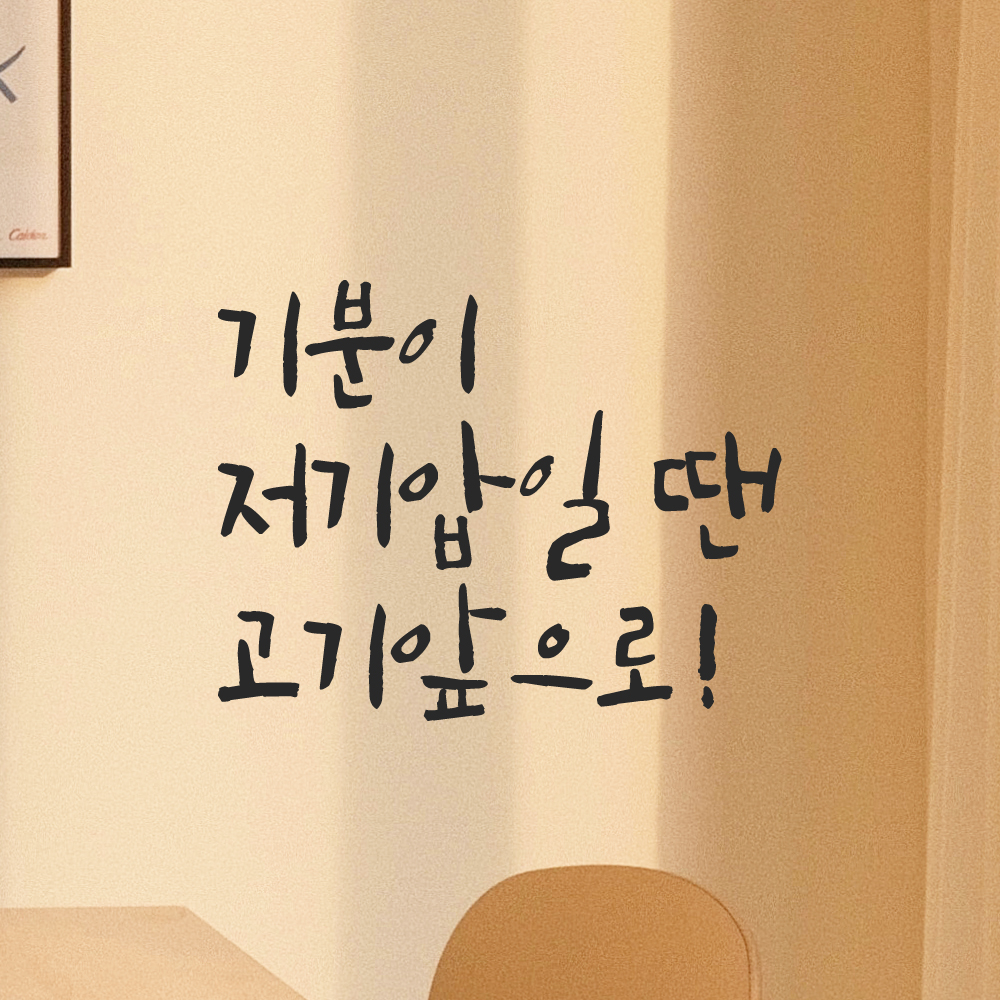 Calder
기분이
저기압일 땐
고기앞으로!